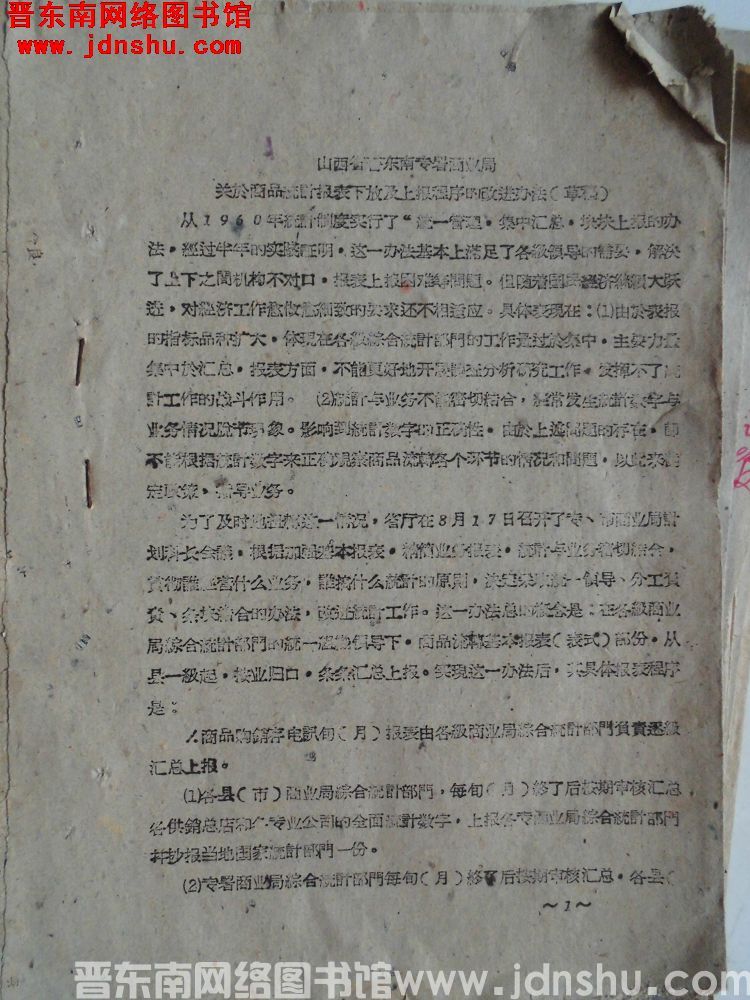 晋东南网络图书馆
www.jdnshu.com
山西省晋东南专署商业局
关於商品統計报表下放及上报程序的改进办法（草稿）
从1960年統計制度实行了“統一管理，集中汇总，块块上报的办
法，經过半年的实践証明，这一办法基本上滿足了各級領导的需要，解决
了上下之間机构不对口，报表上报困难等問題。但随着国民經济継續大跃
进，对經济工作愈做愈細致的要求还不相适应。具体表现在：(1)由於表报
的指标品种扩大，体現在各級綜合統計部門的工作量过於集中，主要力量
集中於汇总，报表方面，不能更好地开展調查分析研究工作，发揮不了統
計工作的战斗作用。(2)統計与业务不能密切結合，經常发生統計数字与
业务情况脫节現象。影响到統計数字的正确性。由於上述問題的存在，即
不能根据統計数字来正确观察商品流轉各个环节的情况和問題，以此来制
定政策，指导业务。
为了及时地扭轉这一情况，省厅在8月17日召开了专、市商业局計
划科长会議，根据加强基本报表，精簡业务报表，統計与业务密切結合，
貫彻誰經营什么业务，誰搞什么統計的原則，决定采取統一領导、分工負
責、条块結合的办法，改进統計工作。这一办法总的概念是：在各級商业
局綜合統計部門的統一組織領导下，商品流轉基本报表（表式）部份，从
县一級起，按业归口，条条汇总上报。实現这一办法后，其具体报表程序
是：
人商品购銷存电訊旬（月）报表由各級商业局綜合統計部門負責逐級
汇总上报。
(1)各县（市）商业局綜合統計部門，每旬（月）終了后按期审核汇总
各供銷总店和各专业公司的全面統計数字，上报各专商业局綜合統計部門
并抄报当地国家統計部門一份。
(2)专署商业局綜合統計部門每旬（月）終了后按期审核汇总，各县（
～1～
晋东南网络图书馆 www.jdnshu.com